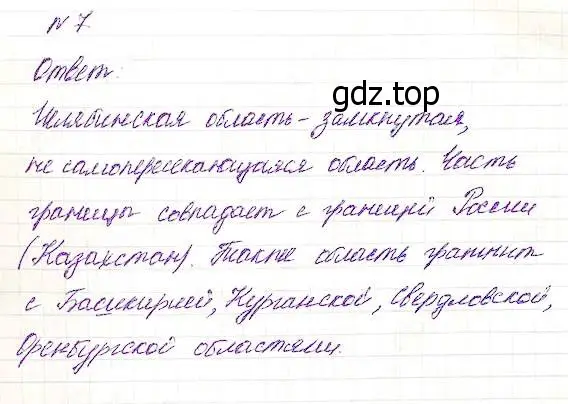 № 7.
Ответ:
gdz.top
Челябинская область - замкнутая,
не самопересекающаяся область. Часть
границы совпадает с границей России
(Казахстан). Также область граничит
с Башкирией, Курганской, Свердловской,
Оренбургской областями.